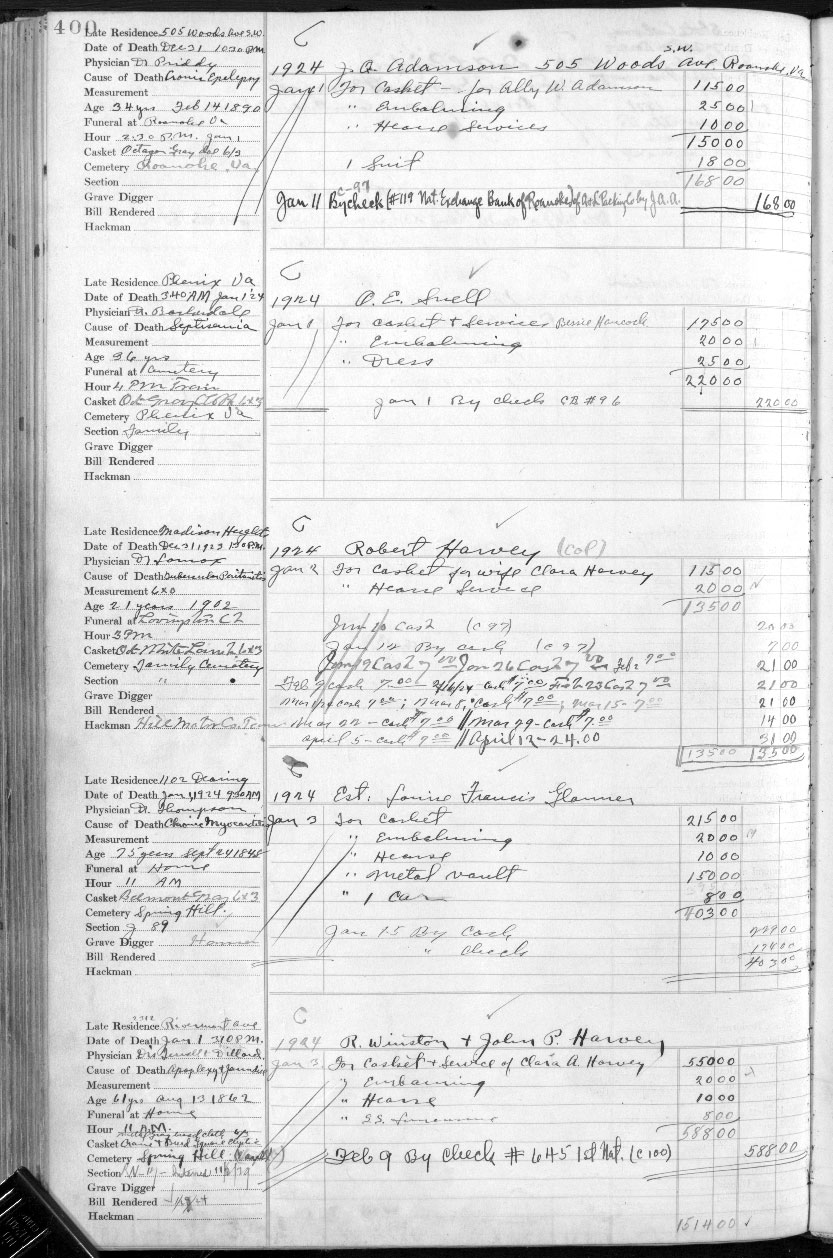 400
Late Residence 505 Woods Ave S.W.
Date of Death Dec 31 10:30 P.M.
Physician Dr Priddy
Cause of Death Cronic Epilepsy
Measurement
Age 34 yrs Feb 14 1890
Funeral at Roanoke Va
Hour 2:30 P.M. Jan 1
Casket Octagon Gray 6/3
Cemetery Roanoke, Va.
Section
Grave Digger
Bill Rendered
Hackman
C
1924 J. Q. Adamson 505 Woods Ave S.W. Roanoke, Va
Jan 1 For Casket - for Ally W. Adamson 115 00
" Embalming 25 00
" Hearse Services 10 00
150 00
1 Suit 18 00
168 00
Jan 11 By check C-97 (#119 Nat. Exchange Bank of Roanoke) by J.Q.A. 168 00
Late Residence Phenix Va
Date of Death 3:40 AM Jan 1 '24
Physician Dr. Barksdale
Cause of Death Septisemia
Measurement
Age 36 yrs
Funeral at Cemetery
Hour 4 PM Train
Casket Oct Gray 6x3
Cemetery Phenix Va
Section Family
Grave Digger
Bill Rendered
Hackman
C
1924 O. E. Snell
Jan 1 For Casket & Services Bessie Hancock 175 00
" Embalming 20 00
" Dress 25 00
220 00
Jan 1 By check CB #96 220 00
Late Residence Madison Heights
Date of Death Dec 31 1923 1:30 P.M.
Physician Dr Lomax
Cause of Death Tubercular Peritonitis
Measurement 6x0
Age 21 years 1902
Funeral at Lovingston C H
Hour 3 PM
Casket Oct White 6x3
Cemetery Family Cemetery
Section "
Grave Digger
Bill Rendered
Hackman Hill Motor Co.
C
1924 Robert Harvey (col)
Jan 2 For Casket for wife Clara Harvey 115 00
" Hearse Service 20 00
135 00
Jan 10 Cash (C 97) 20 00
Jan 12 By cash (C 97) 7 00
Jan 19 Cash 7 00 Jan 26 Cash 7 00 Feb 2 7 00 21 00
Feb 9 cash 7 00 2/16/24 Cash $7 00 Feb 23 Cash 7 00 21 00
Mar 1/24 cash 7 00; Mar 8, Cash $7 00; Mar 15 - 7 00 21 00
Mar 22 - cash $7 00 // Mar 29 - cash $7 00 14 00
April 5 - cash $7 00 // April 12 - 24.00 31 00
135 00 135 00
Late Residence 1102 Dearing
Date of Death Jan 1, 1924 9:30 AM
Physician Dr. Thompson
Cause of Death Chronic Myocarditis
Measurement
Age 75 years Sept 24 1848
Funeral at Home
Hour 11 AM
Casket Belmont Gray 6x3
Cemetery Spring Hill.
Section J 89
Grave Digger
Bill Rendered
Hackman
1924 Est. Louise Francis
Jan 3 For Casket 215 00
" Embalming 20 00
" Hearse 10 00
" Metal Vault 150 00
" 1 Car 8 00
403 00
Jan 15 By Cash
" Check
403 00
Late Residence Rivermont Ave
Date of Death Jan 1 3:10 P.M.
Physician Drs & Dillard
Cause of Death Apoplexy & Jaundice
Measurement
Age 61 yrs Aug 13 1862
Funeral at Home
Hour 11 A.M.
Casket
Cemetery Spring Hill
Section
Grave Digger
Bill Rendered
Hackman
C
1924 R. Winston & John P. Harvey
Jan 3 For Casket & Service of Clara A. Harvey 550 00
" Embalming 20 00
" Hearse 10 00
" 8 00
588 00
Feb 9 By Check # 645 1st Nat. (C 100) 588 00
1514 00